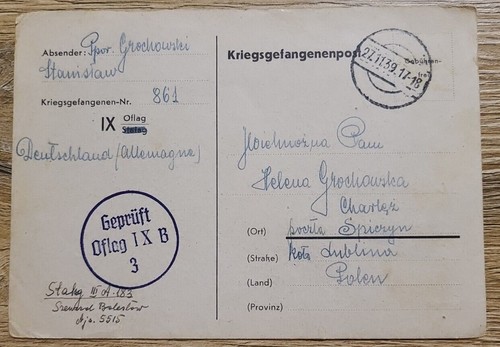 Absender: Ppor. Grochowski
Stanisław
Kriegsgefangenen-Nr. 861
IX Oflag
Stalag
Deutschland (Allemagne)
Geprüft
Oflag IX B
3
Stalag III A. 183
Bolesław
5515
Kriegsgefangenenpost
27.11.39.17-18
Gebühren-
frei
Wielmożna Pani
Helena Grochowska
Charlęż
(Ort) poczta Spiczyn
(Straße) koło Lublina
(Land) Polen
(Provinz)